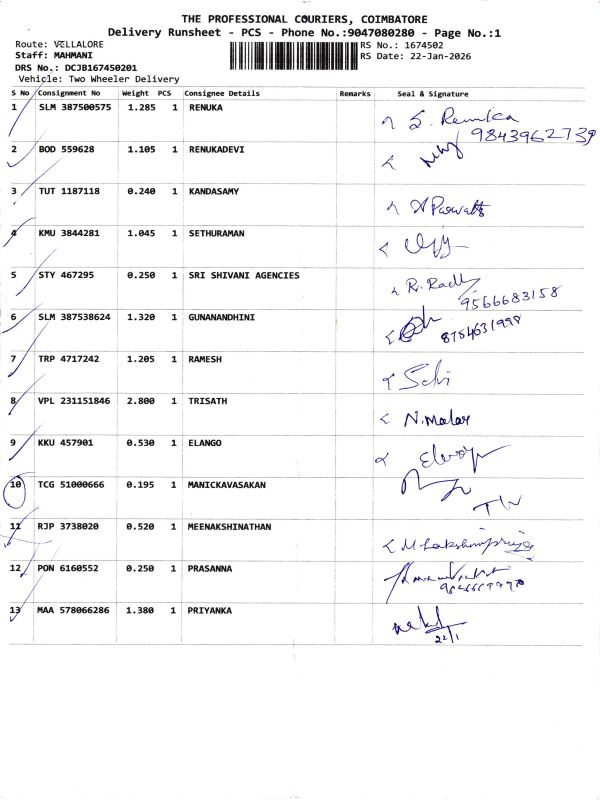 THE PROFESSIONAL COURIERS, COIMBATORE
Delivery Runsheet - PCS - Phone No.:9047080280 - Page No.:1
Route: VELLALORE RS No.: 1674502
Staff: MAHMANI RS Date: 22-Jan-2026
DRS No.: DCJB167450201
Vehicle: Two Wheeler Delivery
S No Consignment No Weight PCS Consignee Details Remarks Seal & Signature
1 SLM 387500575 1.285 1 RENUKA S. Renuka
9843962739
2 BOD 559628 1.105 1 RENUKADEVI
3 TUT 1187118 0.240 1 KANDASAMY
4 KMU 3844281 1.045 1 SETHURAMAN
5 STY 467295 0.250 1 SRI SHIVANI AGENCIES
9566683158
6 SLM 387538624 1.320 1 GUNANANDHINI
8754631998
7 TRP 4717242 1.205 1 RAMESH Selvi
8 VPL 231151846 2.800 1 TRISATH N. Malar
9 KKU 457901 0.530 1 ELANGO
10 TCG 51000666 0.195 1 MANICKAVASAKAN
11 RJP 3738020 0.520 1 MEENAKSHINATHAN M Lakshmipriya
12 PON 6160552 0.250 1 PRASANNA
13 MAA 578066286 1.380 1 PRIYANKA
22/1